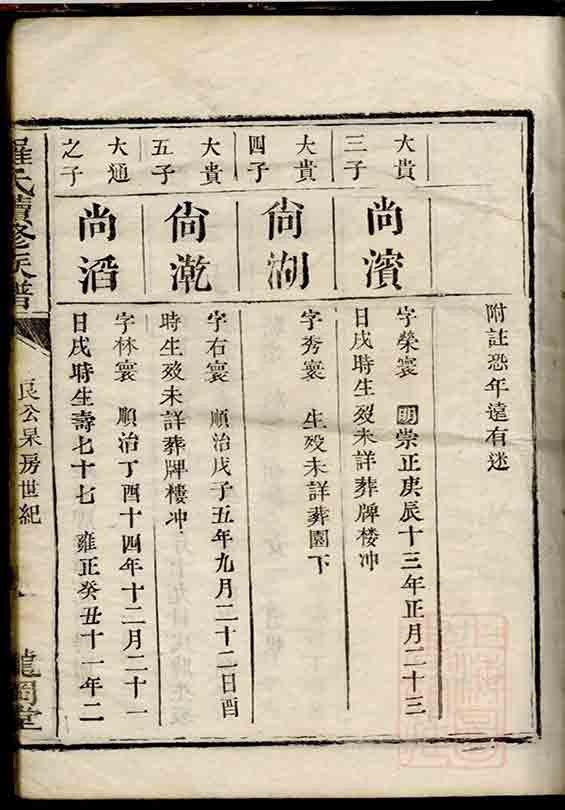 附註恐年遠有迷
大貴
三子
尚濱
字榮寰 明崇正庚辰十三年正月二十三
日戌時生歿未詳葬牌楼冲
大貴
四子
尙湖
字秀寰 生歿未詳葬園下
大貴
五子
尙漧
字右寰 順治戊子五年九月二十二日酉
時生歿未詳葬牌樓冲
大通
之子
尚滔
字林寰 順治丁酉十四年十二月二十一
日戌時生壽七十七 雍正癸丑十一年二
羅氏續修族譜
良公杲房世紀
龍岡堂